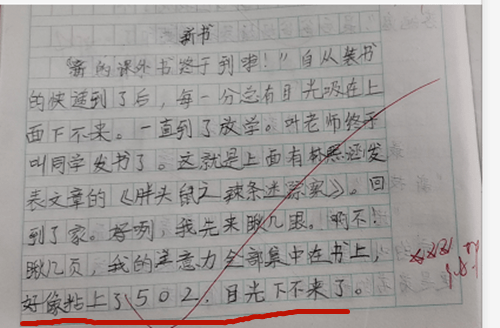 新书
“新的课外书终于到啦！”自从装书
的快递到了后，每一分总有目光吸在上
面下不来。一直到了放学。叫老师终于
叫同学发书了。这就是上面有 还发
表文章的《胖头鼠之辣条迷踪案》。回
到了家。好咧，我先来瞅几眼。啊不！
瞅几页，我的注意力全部集中在书上，
好像粘上了502，目光下不来了。